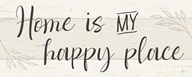 Home is MY
happy place